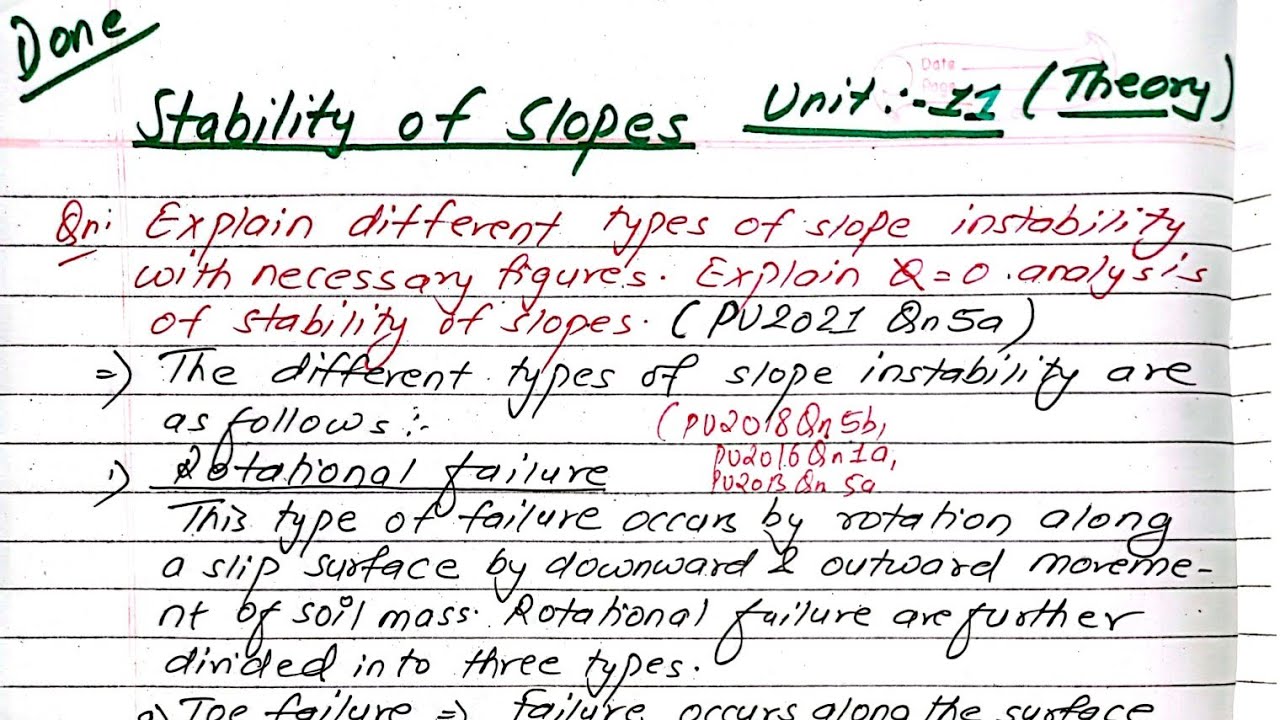 Done
Stability of Slopes Unit:-11 (Theory)
Date
Page
Qn: Explain different types of slope instability
with necessary figures. Explain Q=0 analysis
of stability of slopes. (PU2021 Qn5a)
=) The different types of slope instability are
as follows:-
(PU2018Qn5b,
PU2016Qn1a,
PU2013Qn 5a
i) Rotational failure
This type of failure occurs by rotation along
a slip surface by downward & outward moveme-
nt of soil mass. Rotational failure are further
divided into three types.
a) Toe failure =) failure occurs along the surface